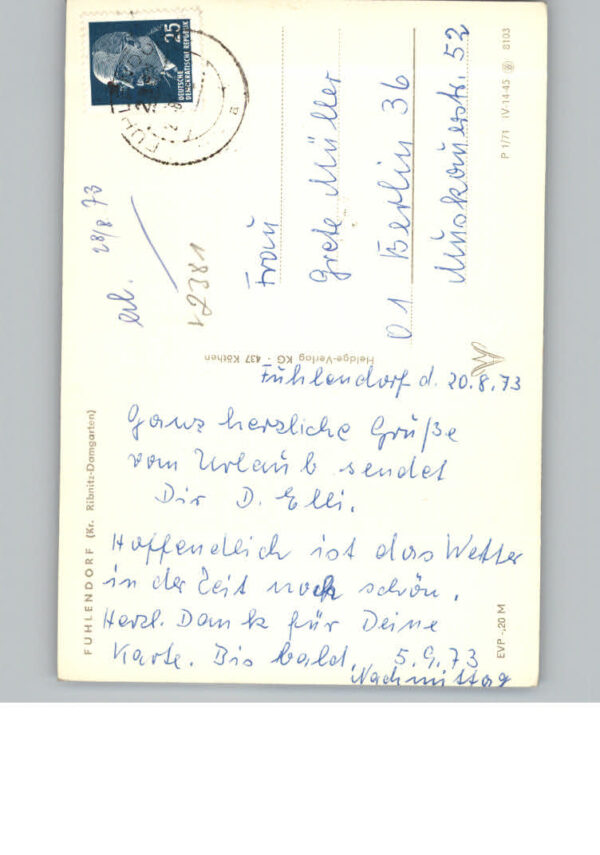 Fuhlendorf d. 20.8.73
Ganz herzliche Grüße
vom Urlaub sendet
Dir D. Elli.
Hoffendlich ist das Wetter
in der Zeit noch schön.
Herzl. Dank für Deine
Karte. Bis bald, 5.9.73
Nachmittag
FUHLENDORF (Kr. Ribnitz-Damgarten)
EVP -,20 M
Heldge-Verlag KG · 437 Köthen
erh. 28/8 73
v2381
25
DEUTSCHE
DEMOKRATISCHE REPUBLIK
Frau
Grete Müller
01 Berlin 36
Muskauerstr. 52
P 1/71 IV-14-45 8103